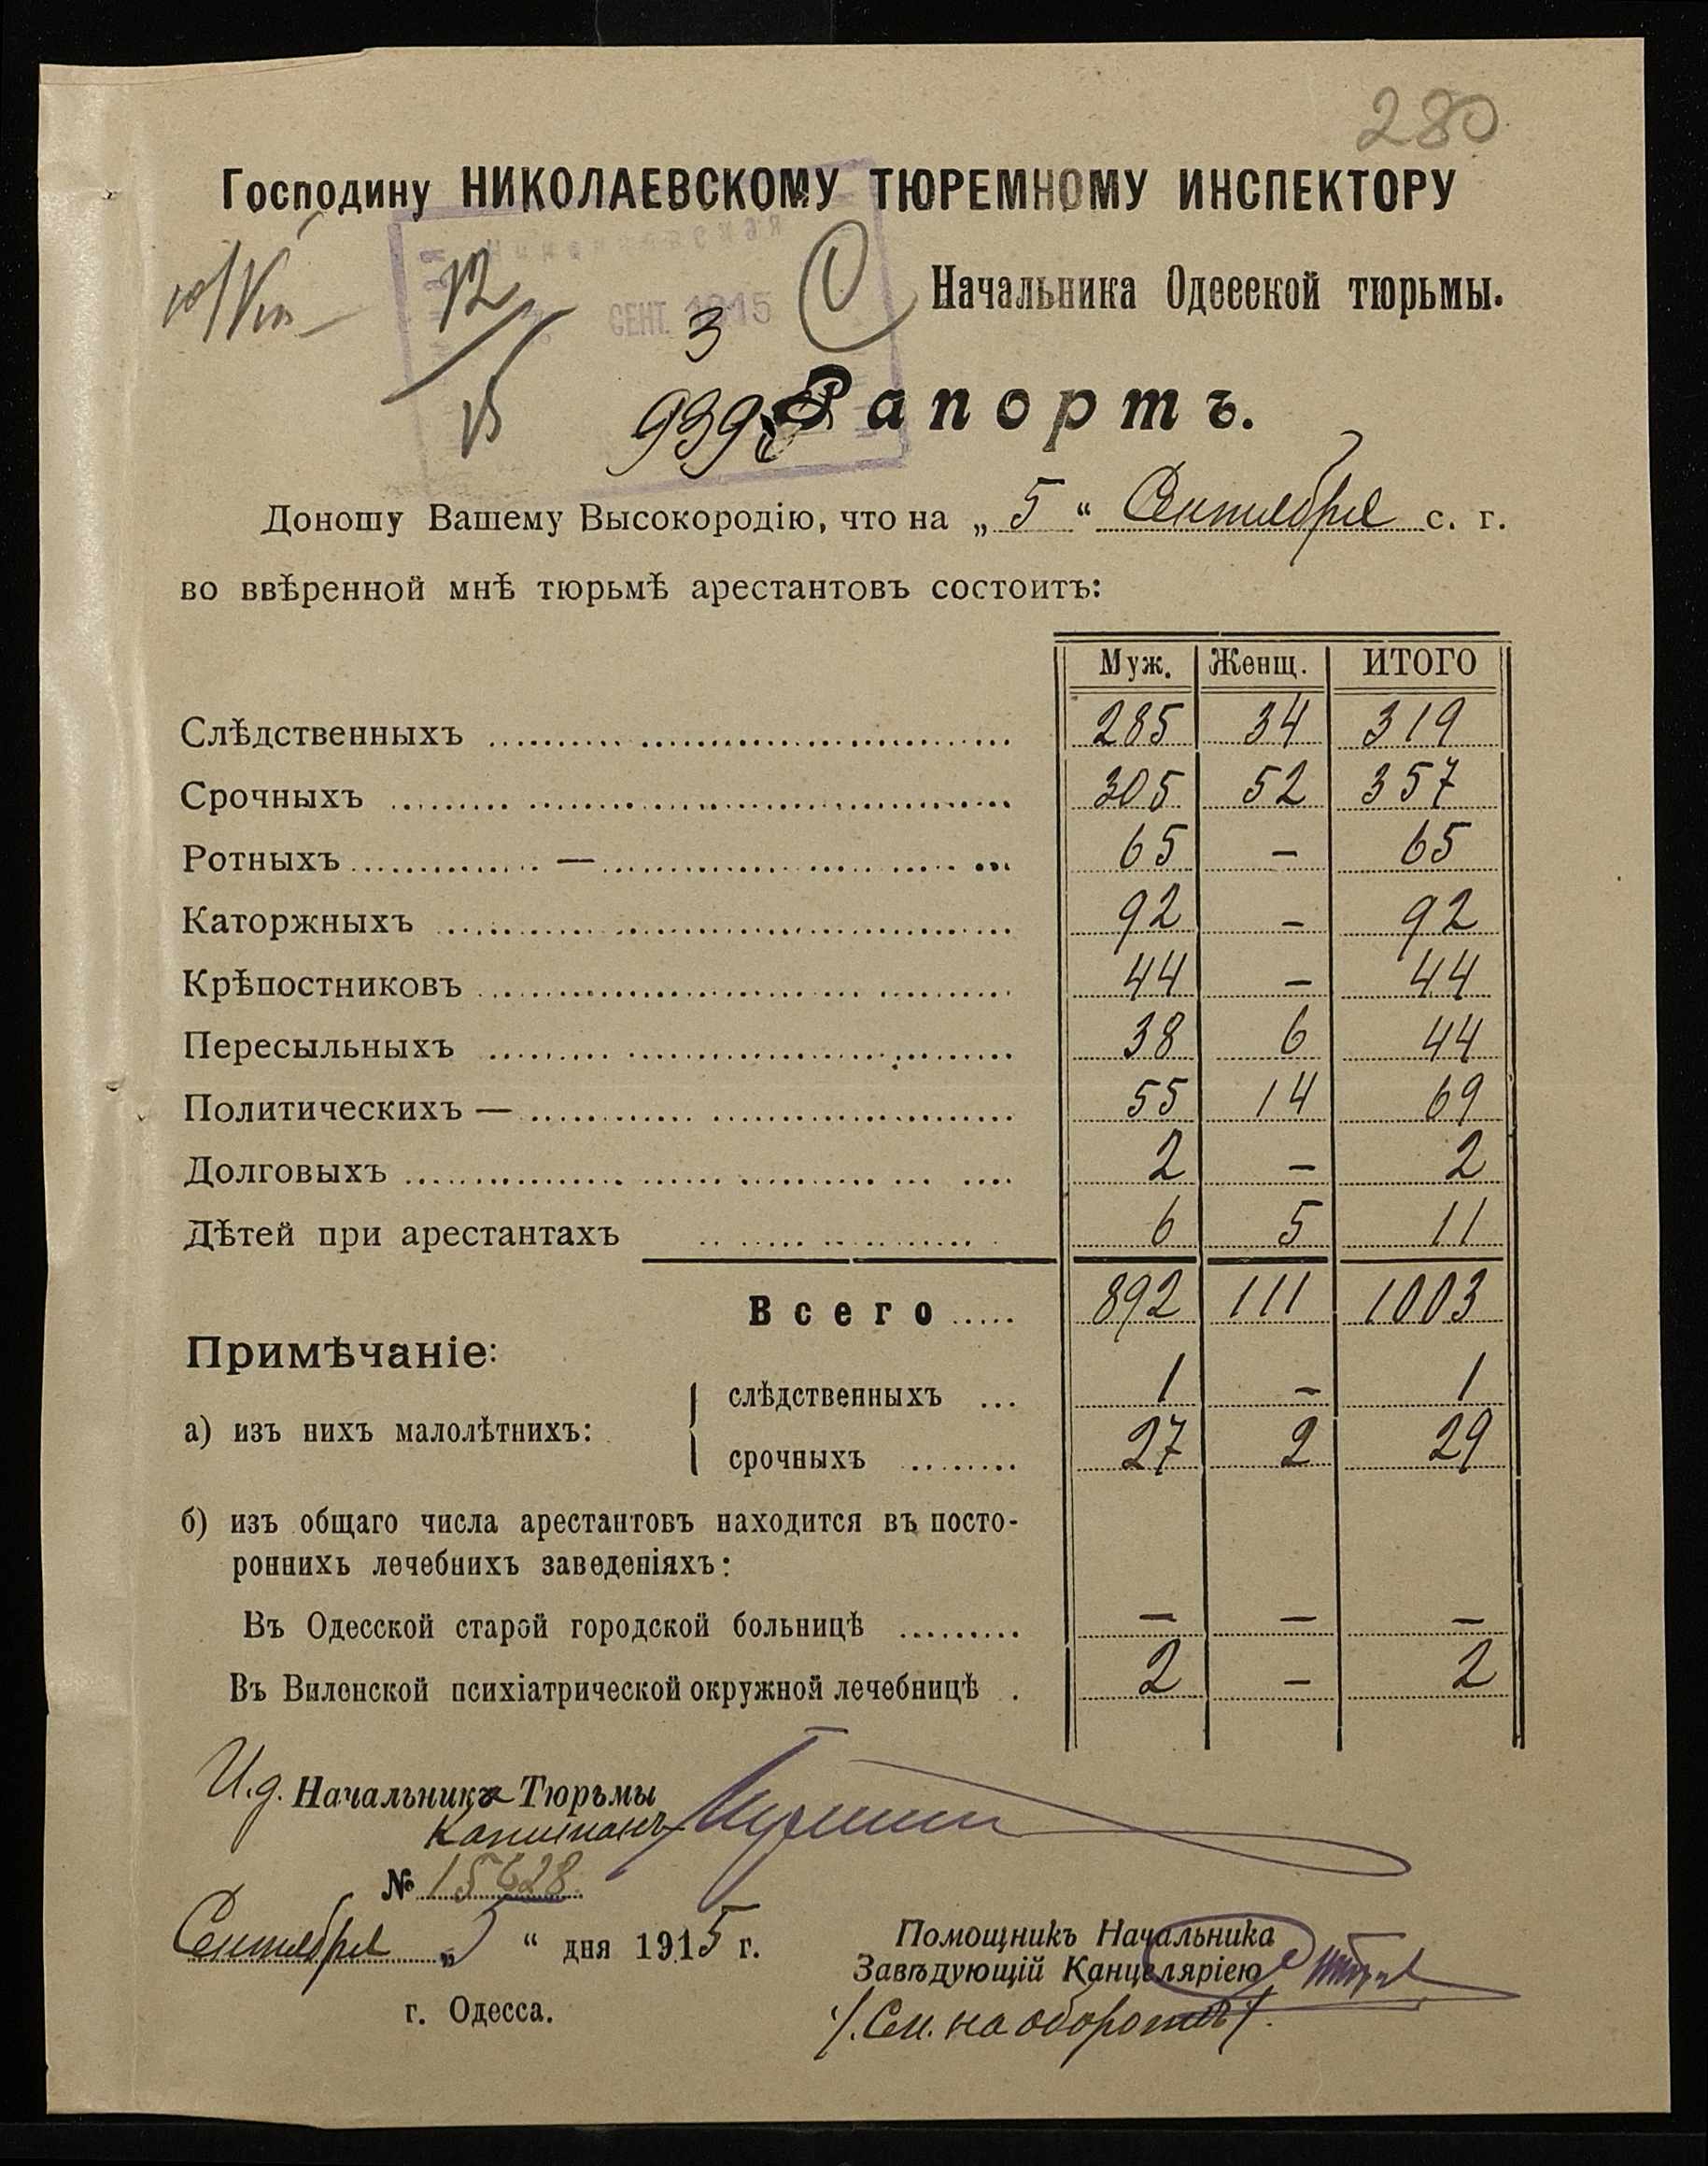 280
Господину НИКОЛАЕВСКОМУ ТЮРЕМНОМУ ИНСПЕКТОРУ
12
СЕНТ. 1915
Начальника Одесской тюрьмы.
3
15
939
Рапортъ.
Доношу Вашему Высокородію, что на „ 5 “ Сентября с. г.
во ввѣренной мнѣ тюрьмѣ арестантовъ состоитъ:
Муж. Женщ. ИТОГО
Слѣдственныхъ 285 34 319
Срочныхъ 305 52 357
Ротныхъ — 65 — 65
Каторжныхъ 92 — 92
Крѣпостниковъ 44 — 44
Пересыльныхъ 38 6 44
Политическихъ — 55 14 69
Долговыхъ 2 — 2
Дѣтей при арестантахъ 6 5 11
Всего 892 111 1003
Примѣчаніе:
слѣдственныхъ 1 — 1
а) изъ нихъ малолѣтнихъ:
срочныхъ 27 2 29
б) изъ общаго числа арестантовъ находится въ посто-
роннихъ лечебнихъ заведеніяхъ:
Въ Одесской старой городской больницѣ — — —
Въ Виленской психіатрической окружной лечебницѣ 2 — 2
И.д. Начальника Тюрьмы
Капитанъ
№ 15628
Сентября „ 5 “ дня 1915 г.
Помощникъ Начальника
Завѣдующій Канцеляріею
г. Одесса.
/. См. на оборотѣ /.